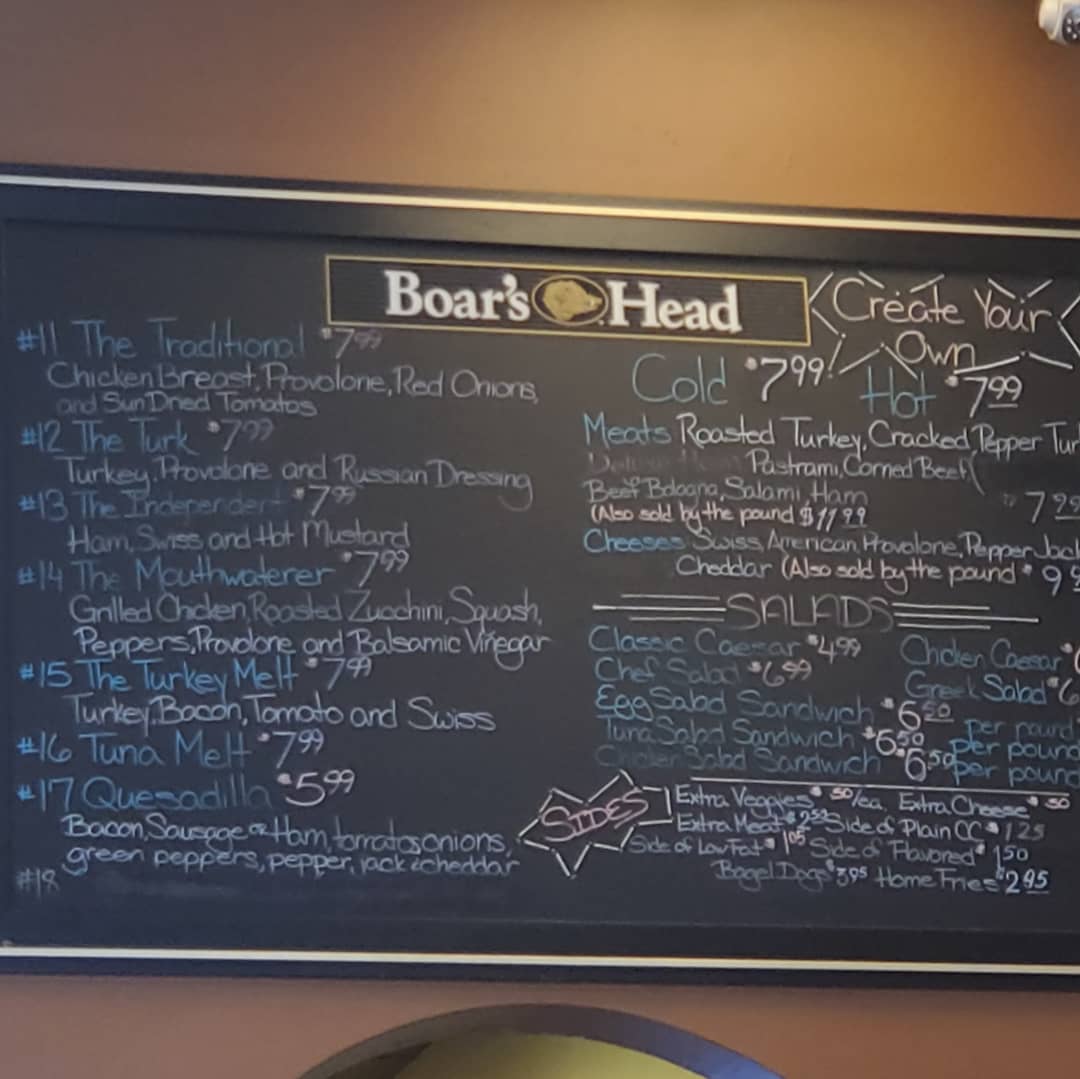 Boar's Head
#11 The Traditional $7.99
Chicken Breast, Provolone, Red Onions,
and Sun Dried Tomatos
#12 The Turk $7.99
Turkey, Provolone and Russian Dressing
#13 The Independent $7.99
Ham, Swiss and Hot Mustard
#14 The Mouthwaterer $7.99
Grilled Chicken, Roasted Zucchini, Squash,
Peppers, Provolone and Balsamic Vinegar
#15 The Turkey Melt $7.99
Turkey, Bacon, Tomato and Swiss
#16 Tuna Melt $7.99
#17 Quesadilla $5.99
Bacon, Sausage or Ham, tomatos onions,
green peppers, pepper, jack & cheddar
#18
Create Your
Own
Cold $7.99! Hot $7.99
Meats Roasted Turkey, Cracked Pepper Tur
Pastrami, Corned Beef
Beef Bologna, Salami, Ham
(Also sold by the pound $11.99
Cheeses Swiss, American, Provolone, Pepper Jack
Cheddar (Also sold by the pound $9
SALADS
Classic Caesar $4.99 Chicken Caesar $
Chef Salad $6.99 Greek Salad $6
Egg Salad Sandwich $6.50 per pound
Tuna Salad Sandwich $6.50 per pound
Chicken Salad Sandwich $6.50 per pound
SIDES
Extra Veggies $.50/ea. Extra Cheese $.50
Extra Meat $2.52 Side of Plain CC $1.25
Side of Low Fat $1.05 Side of Flavored $1.50
Bagel Dogs $3.95 Home Fries $2.95